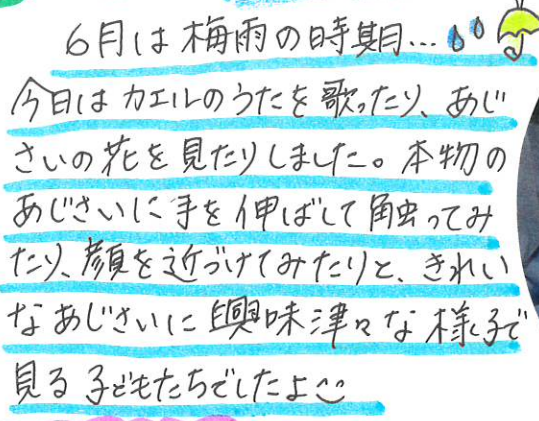 6月は梅雨の時期…
今日はカエルのうたを歌ったり、あじ
さいの花を見たりしました。本物の
あじさいに手を伸ばして触ってみ
たり、顔を近づけてみたりと、きれい
なあじさいに興味津々な様子で
見る子どもたちでしたよ